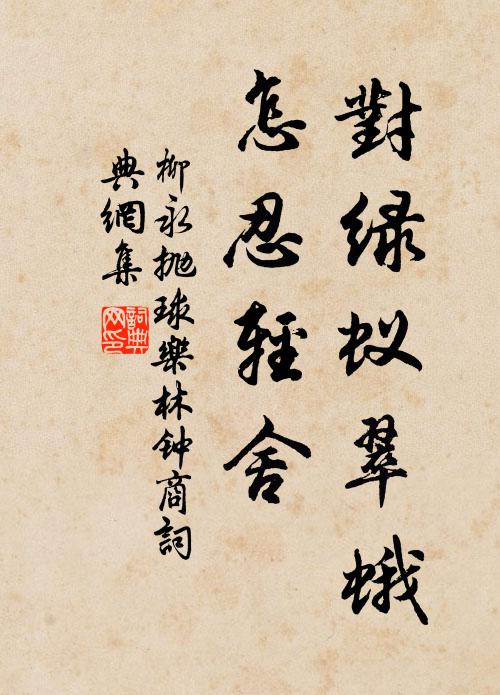 對緑蚁翠蛾
怎忍輕舍
柳永抛球樂林钟商詞
典網集
詞典网印